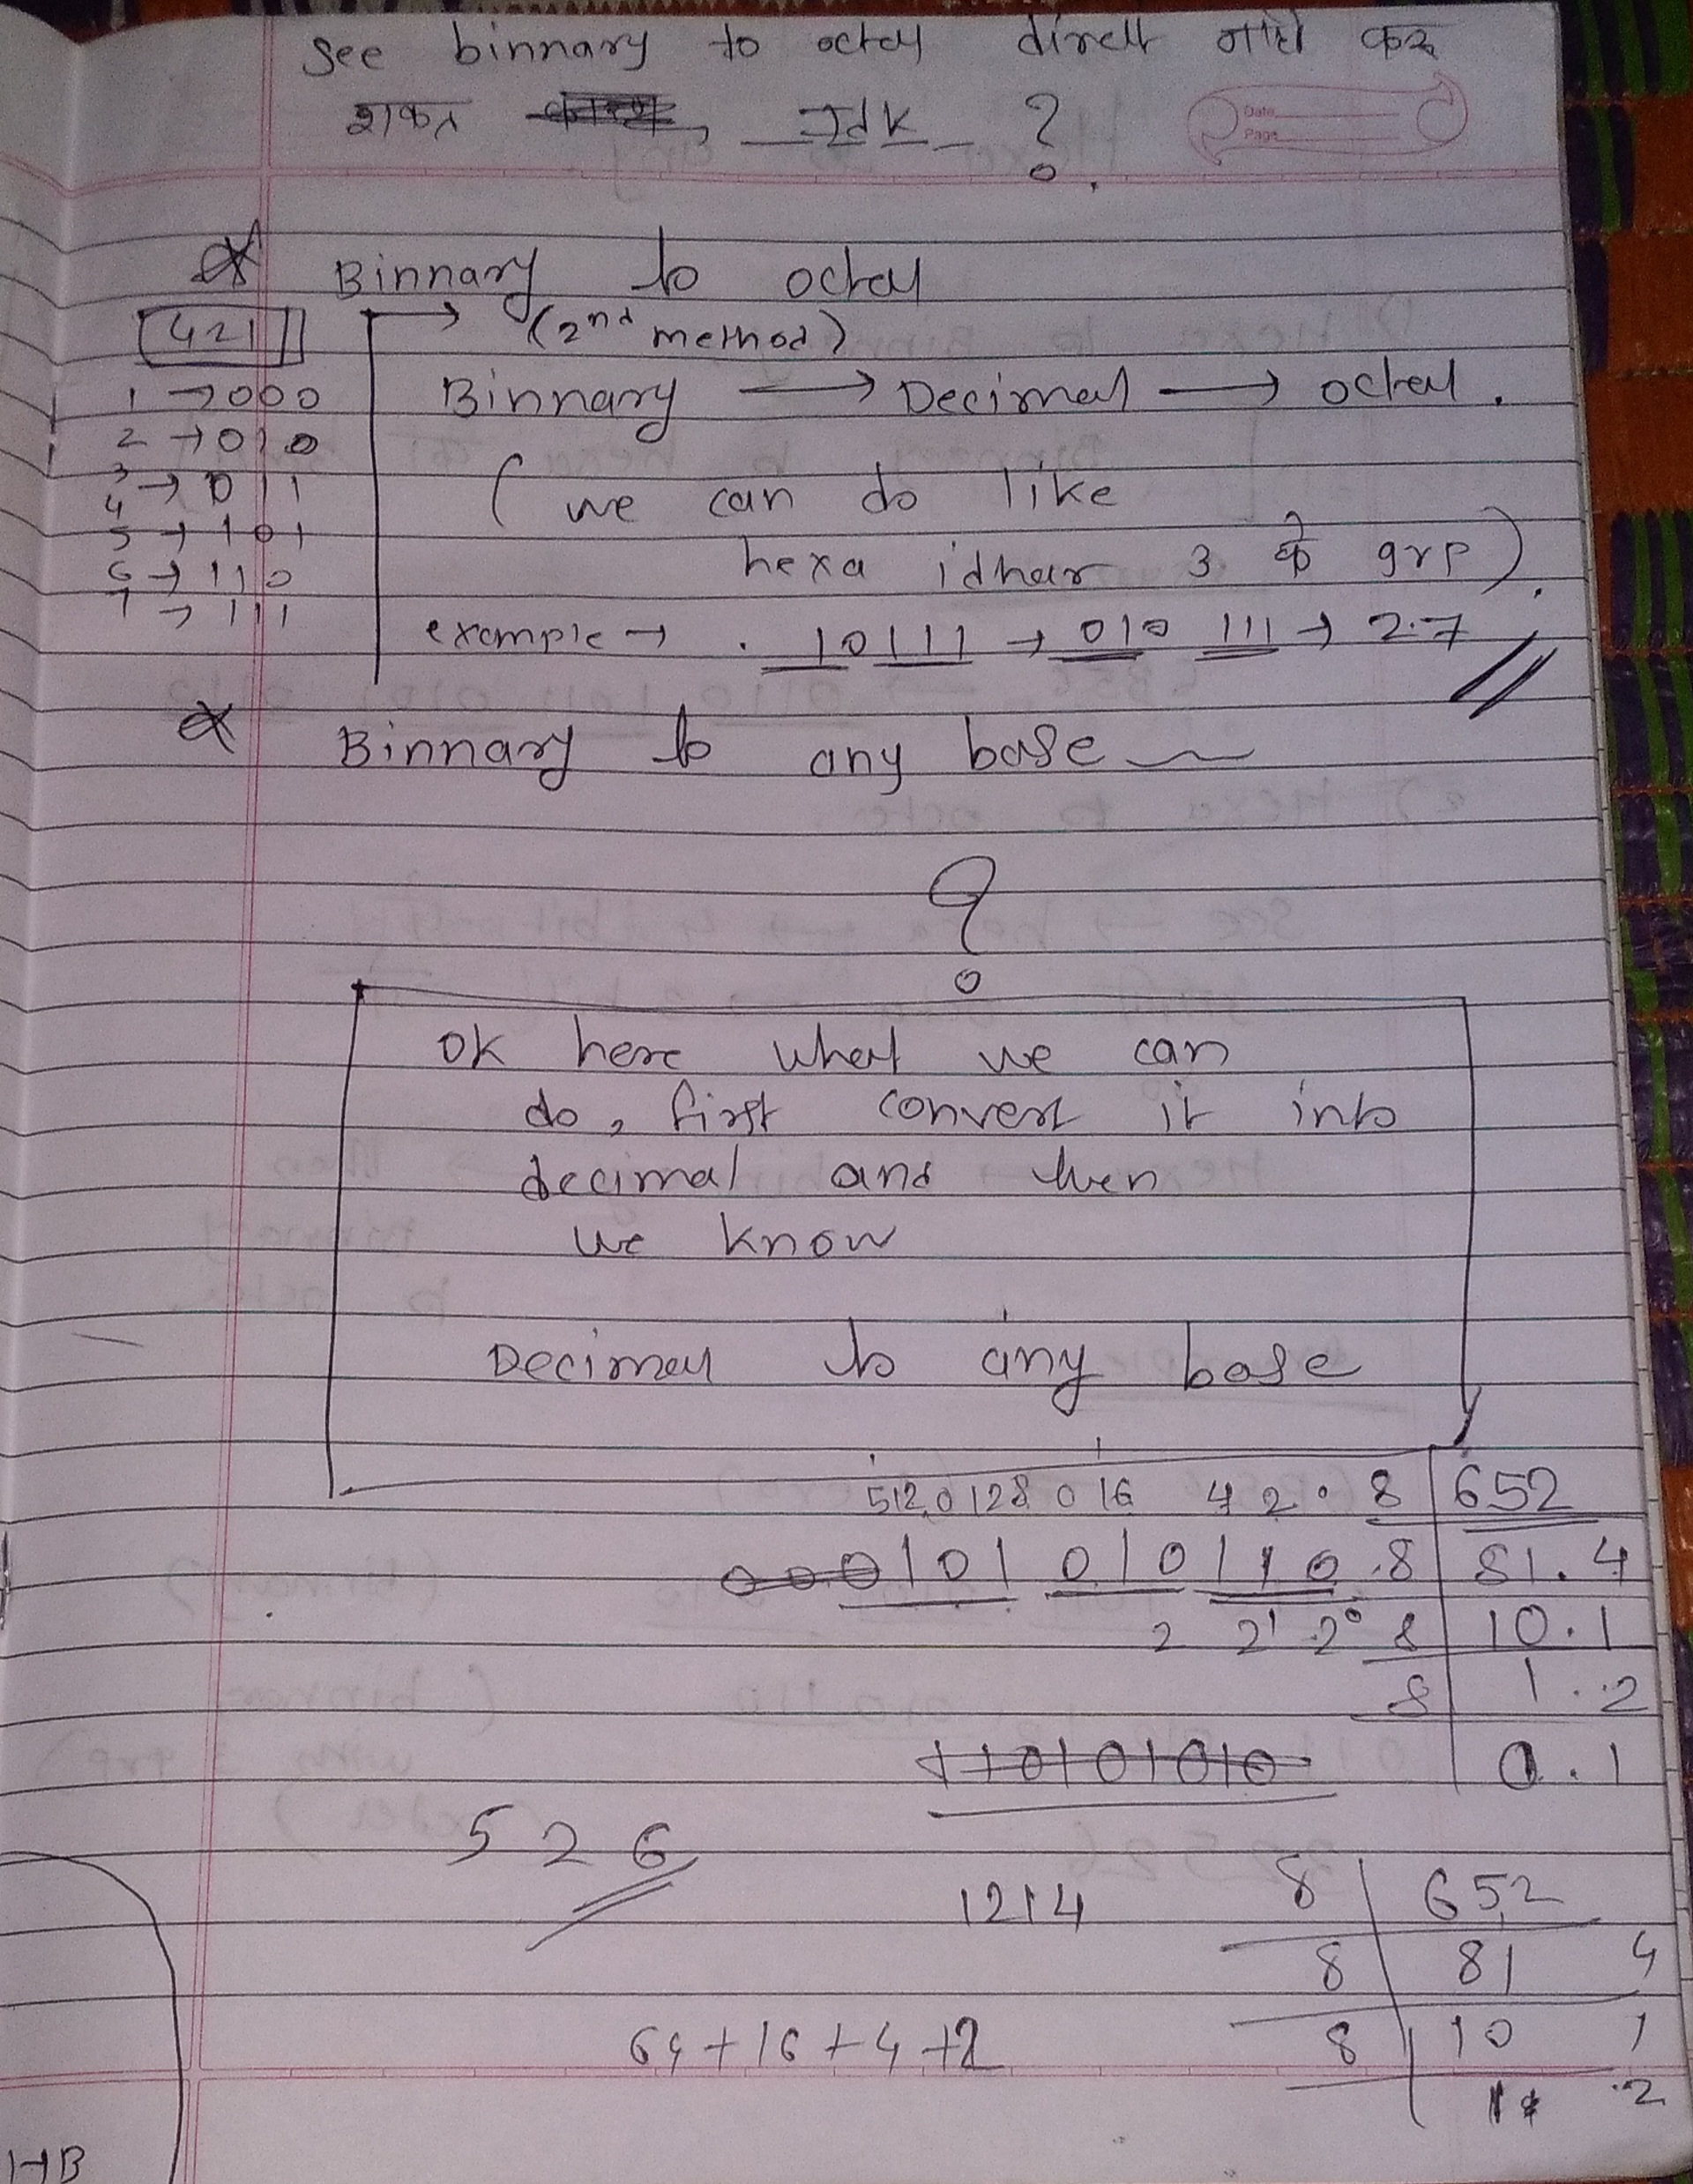 see binnary to octal direct नाही करू
शकत , IdK ?
Date
Page
* Binnary to octal
421
→ (2nd method)
1 → 000
2 → 010
3 → 011
4
5 → 101
6 → 110
7 → 111
Binnary → Decimal → octal.
( we can do like
hexa idhar 3 के grp).
example → . 10111 → 010 111 → 2.7
* Binnary to any base ~
?
OK here what we can
do, first convert it into
decimal and then
we know
Decimal to any base
512 0 128 0 16 4 2 0
000101 010 110
2 2¹ 2⁰
8 652
8 81.4
8 10.1
8 1.2
0.1
110101010
5 2 6
1214
8 652
8 81 4
8 10 1
1 .2
64 + 16 + 4 + 2
HB